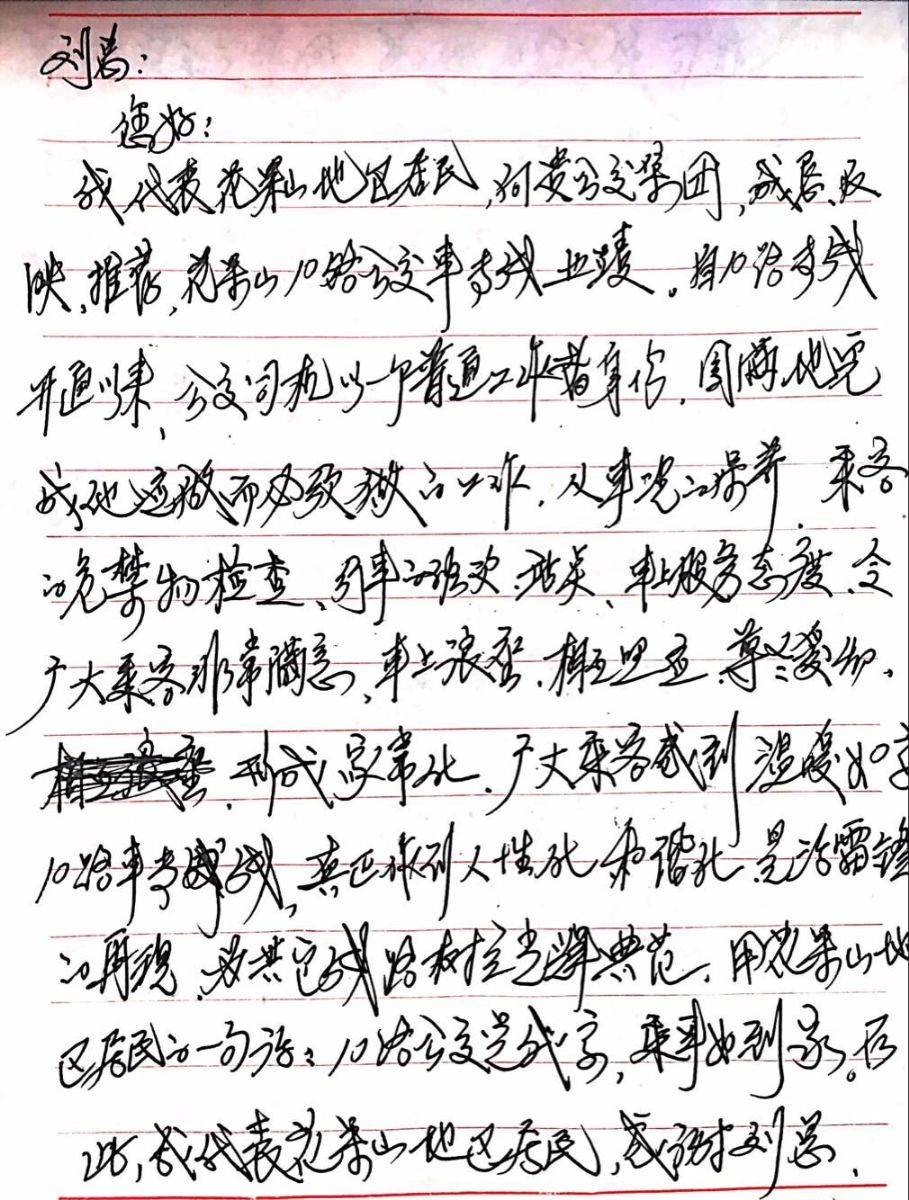 刘总：
您好：
我代表花果山地区居民，向贵公交集团，诚恳反
映，推荐，花果山10路公交车专线业绩。自10路专线
开通以来，公交司机以一个普通工作者身份，圆满地完
成他应做而必须做的工作，从车况的保养，乘客
的危禁物检查、引车的班次、站点、车上服务态度、令
广大乘客非常满意，车上
形成家常化，广大乘客感到温暖如家
10路车专线，真正做到人性化和谐化是活雷锋
的再现，为其它线路树立光辉典范，用花果山地
区居民的一句话：10路公交是我家，乘车如到家。在
此，我代表花果山地区居民，感谢刘总，